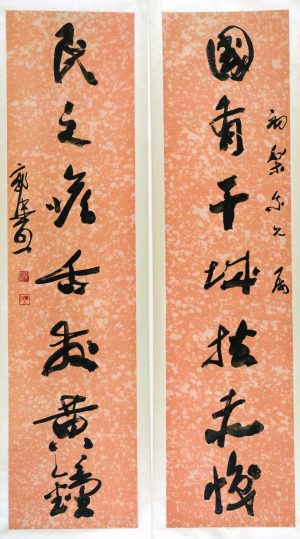 國有干城扶赤幟
初梨兄屬
民之喉舌發黃鐘
郭沫若